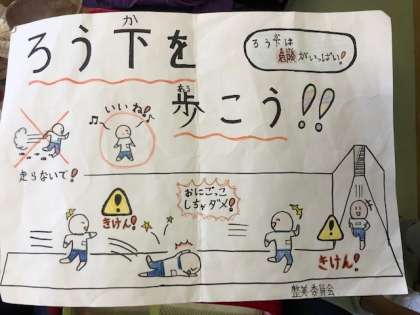 ろう下を
か
歩こう!!
ある
ろう下は
危険がいっぱい!
走らないで!
いいね!
きけん!
おにごっこ
しちゃダメ!
きけん!
整美委員会